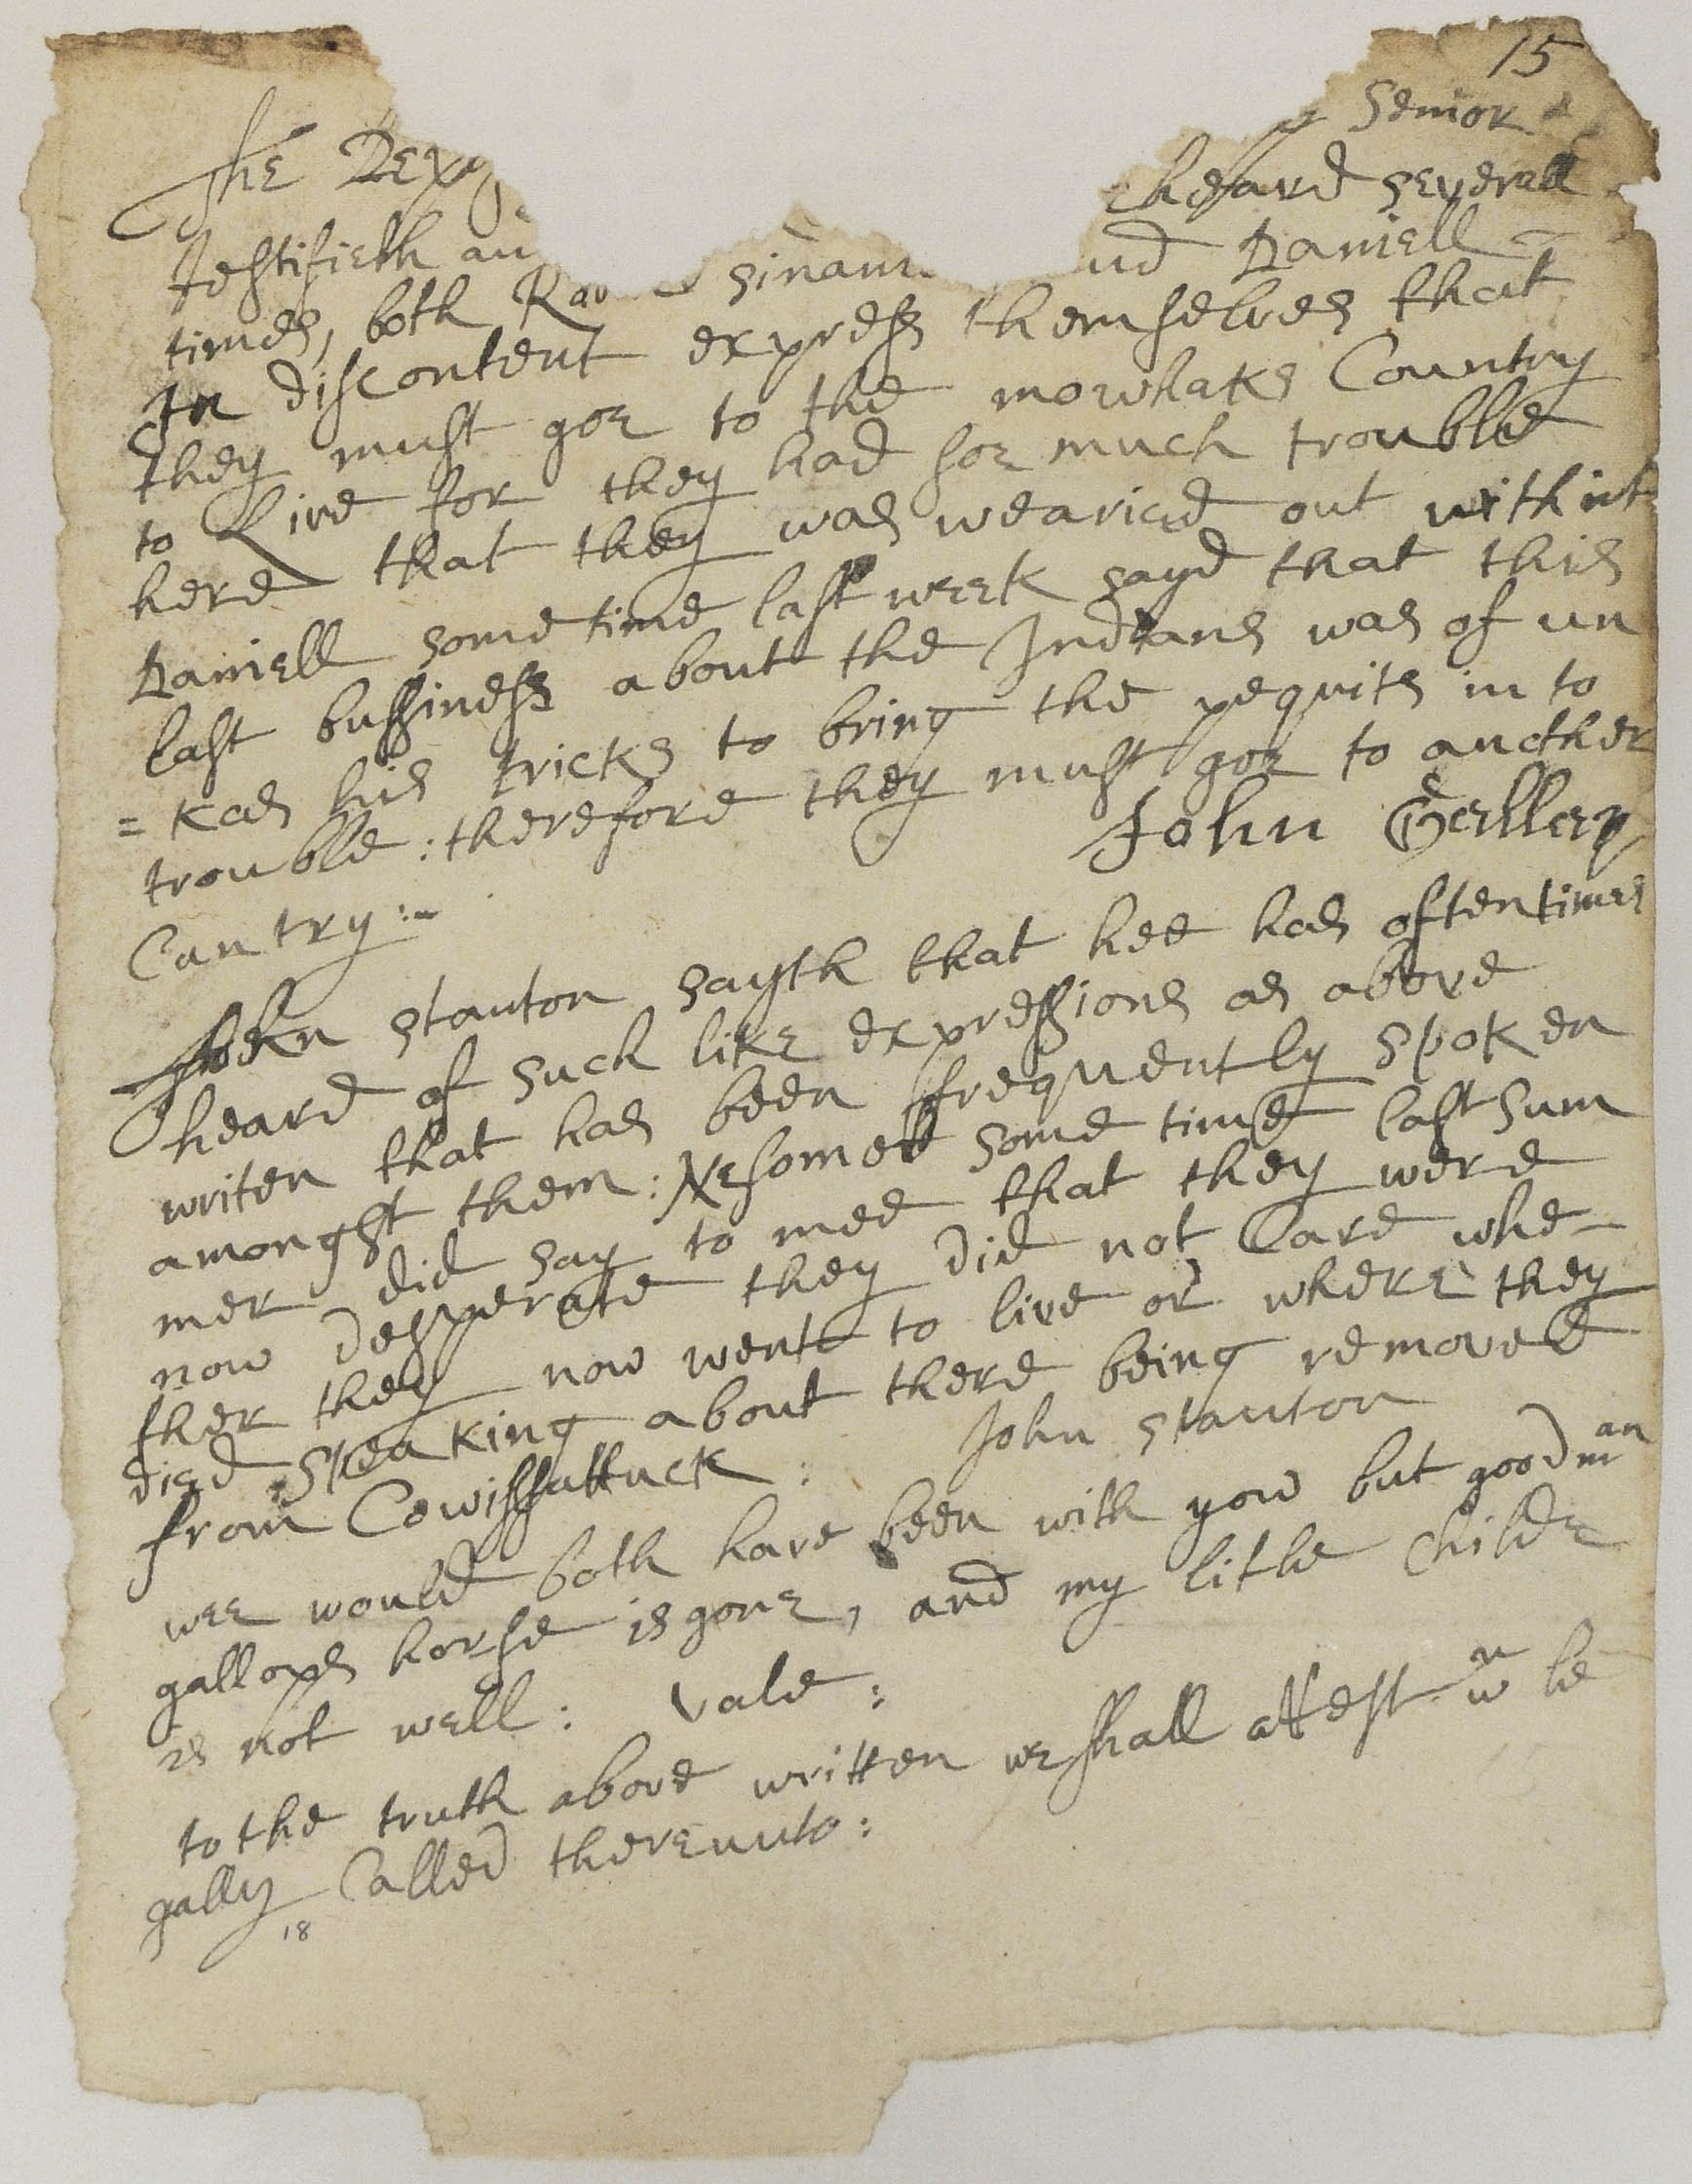 15
The Depo Senior
Testifieth an heard severall
times, both sinam nd Daniell
In discontent express themselves that
they must goe to the mowhaks Country
to Live for they had soe much trouble
here that they was wearied out with int
Daniell some time last week sayd that this
last bussiness about the Indians was of un
= kas his tricks to bring the pequits in to
trouble : therefore they must goe to another
Cuntry :
John
John stanton sayth that hee has oftentimes
heard of such like expressions as above
writen that has been frequently spoken
amongst them : Nesomet some time last sum
mer did say to mee that they were
now desperate they did not Care whe-
ther they now went to live or where they
died speaking about there being removed
from Cowissattuck :
John stanton
wee would both have been with yow but goodman
gallops horse is gone, and my little Childe
is not well : vale :
to the truth above written we shall attest wn le
gally Called thereunto :
18